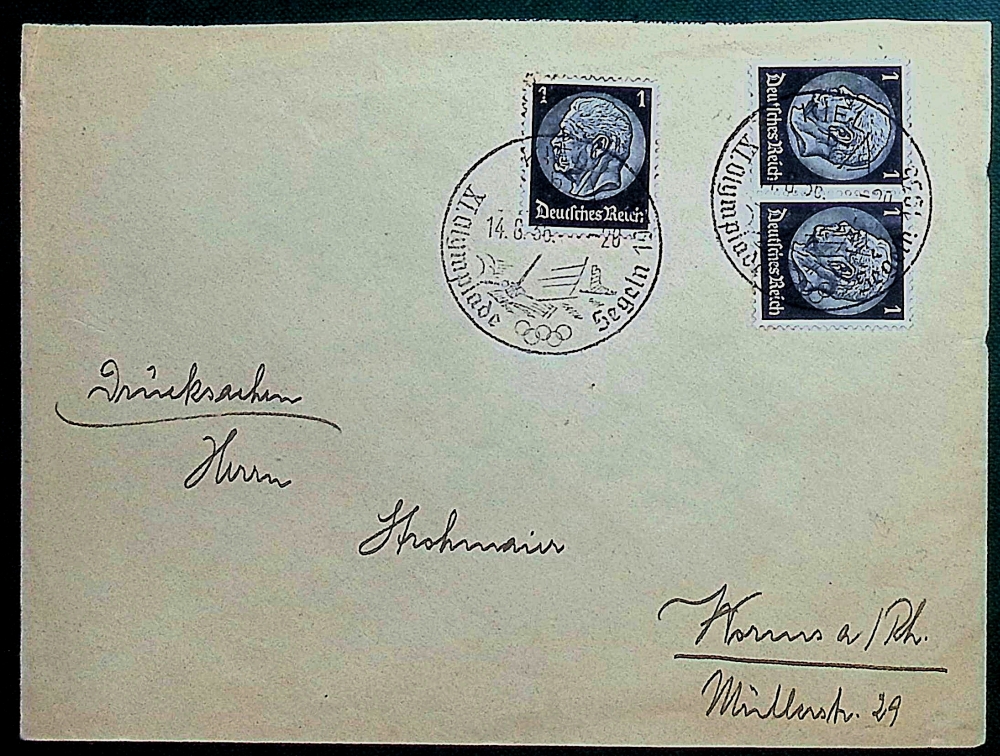 1 1
Deutsches Reich
1 1
Deutsches Reich
1 1
Deutsches Reich
KIEL
XI Olympiade
14.8.36. - 20
Segeln 1936
XI Olympiade
Drucksachen
Herrn
Strohmaier
Worms a/Rh.
Müllerstr. 29